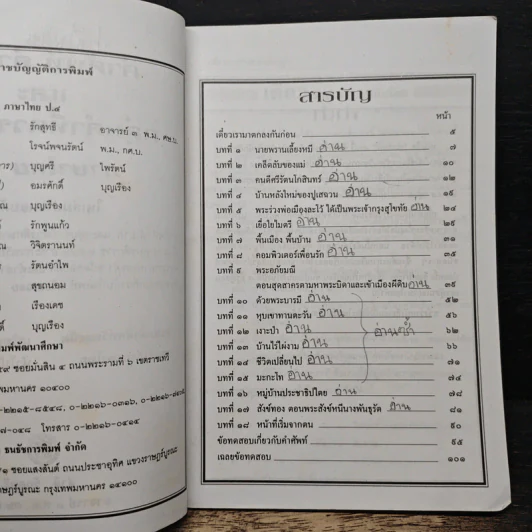 าชบัญญัติการพิมพ์
ภาษาไทย ป.๔
รักสุทธี อาจารย์ ๓ พ.ม., ศษ.บ.
โรจน์พจนรัตน์ พ.ม., กศ.บ.
บุญศรี ไพรัตน์
อมรศักดิ์ บุญเรือง
บุญเรือง
รักพูนแก้ว
วิจิตรานนท์
รัตนอำไพ
สุขถนอม
เรืองเดช
บุญเรือง
มพ์พัฒนาศึกษา
ซอยมั่นสิน ๔ ถนนพระรามที่ ๖ เขตราชเทวี
เทพมหานคร ๑๐๔๐๐
โทรสาร ๐-๒๒๑๖-๐๔๑๔
ธนธัชการพิมพ์ จำกัด
ซอยแสงสันต์ ถนนประชาอุทิศ แขวงราษฎร์บูรณะ
ราษฎร์บูรณะ กรุงเทพมหานคร ๑๔๑๐๐
สารบัญ
หน้า
เดี๋ยวเรามาตกลงกันก่อน ๕
บทที่ ๑ นายพรานเนื้องหมี อ่าน ๗
บทที่ ๒ เคล็ดลับของแม่ อ่าน ๑๐
บทที่ ๓ คนดีศรีรัตนโกสินทร์ อ่าน ๑๒
บทที่ ๔ บ้านหลังใหม่ของปูเสฉวน อ่าน ๑๕
บทที่ ๕ พระร่วงพ่อเมืองละโว้ ได้เป็นพระเจ้ากรุงสุโขทัย อ่าน ๒๔
บทที่ ๖ เยื่อใยไมตรี อ่าน ๒๘
บทที่ ๗ พื้นเมือง พื้นบ้าน อ่าน ๓๑
บทที่ ๘ คอมพิวเตอร์เพื่อนรัก อ่าน ๓๕
บทที่ ๙ พระอภัยมณี
ตอนสุดสาครตามหาพระบิดาและเข้าเมืองผีดิบ อ่าน ๓๙
บทที่ ๑๐ ด้วยพระบารมี อ่าน ๕๒
บทที่ ๑๑ หุบเขาทานตะวัน อ่าน ๕๖
บทที่ ๑๒ เงาะป่า อ่าน ๖๒
บทที่ ๑๓ บ้านไร้ผ่างาม อ่าน ๖๖
บทที่ ๑๔ ชีวิตเปลี่ยนไป อ่าน ๗๑
บทที่ ๑๕ มะกะโท อ่าน ๗๔
บทที่ ๑๖ หมู่บ้านประชาธิปไตย อ่าน ๗๘
บทที่ ๑๗ สังข์ทอง ตอนพระสังข์หนีนางพันธุรัต อ่าน ๘๑
บทที่ ๑๘ หน้าที่เริ่มจากตน ๙๑
ข้อทดสอบเกี่ยวกับคำศัพท์ ๙๕
เฉลยข้อทดสอบ ๑๐๑